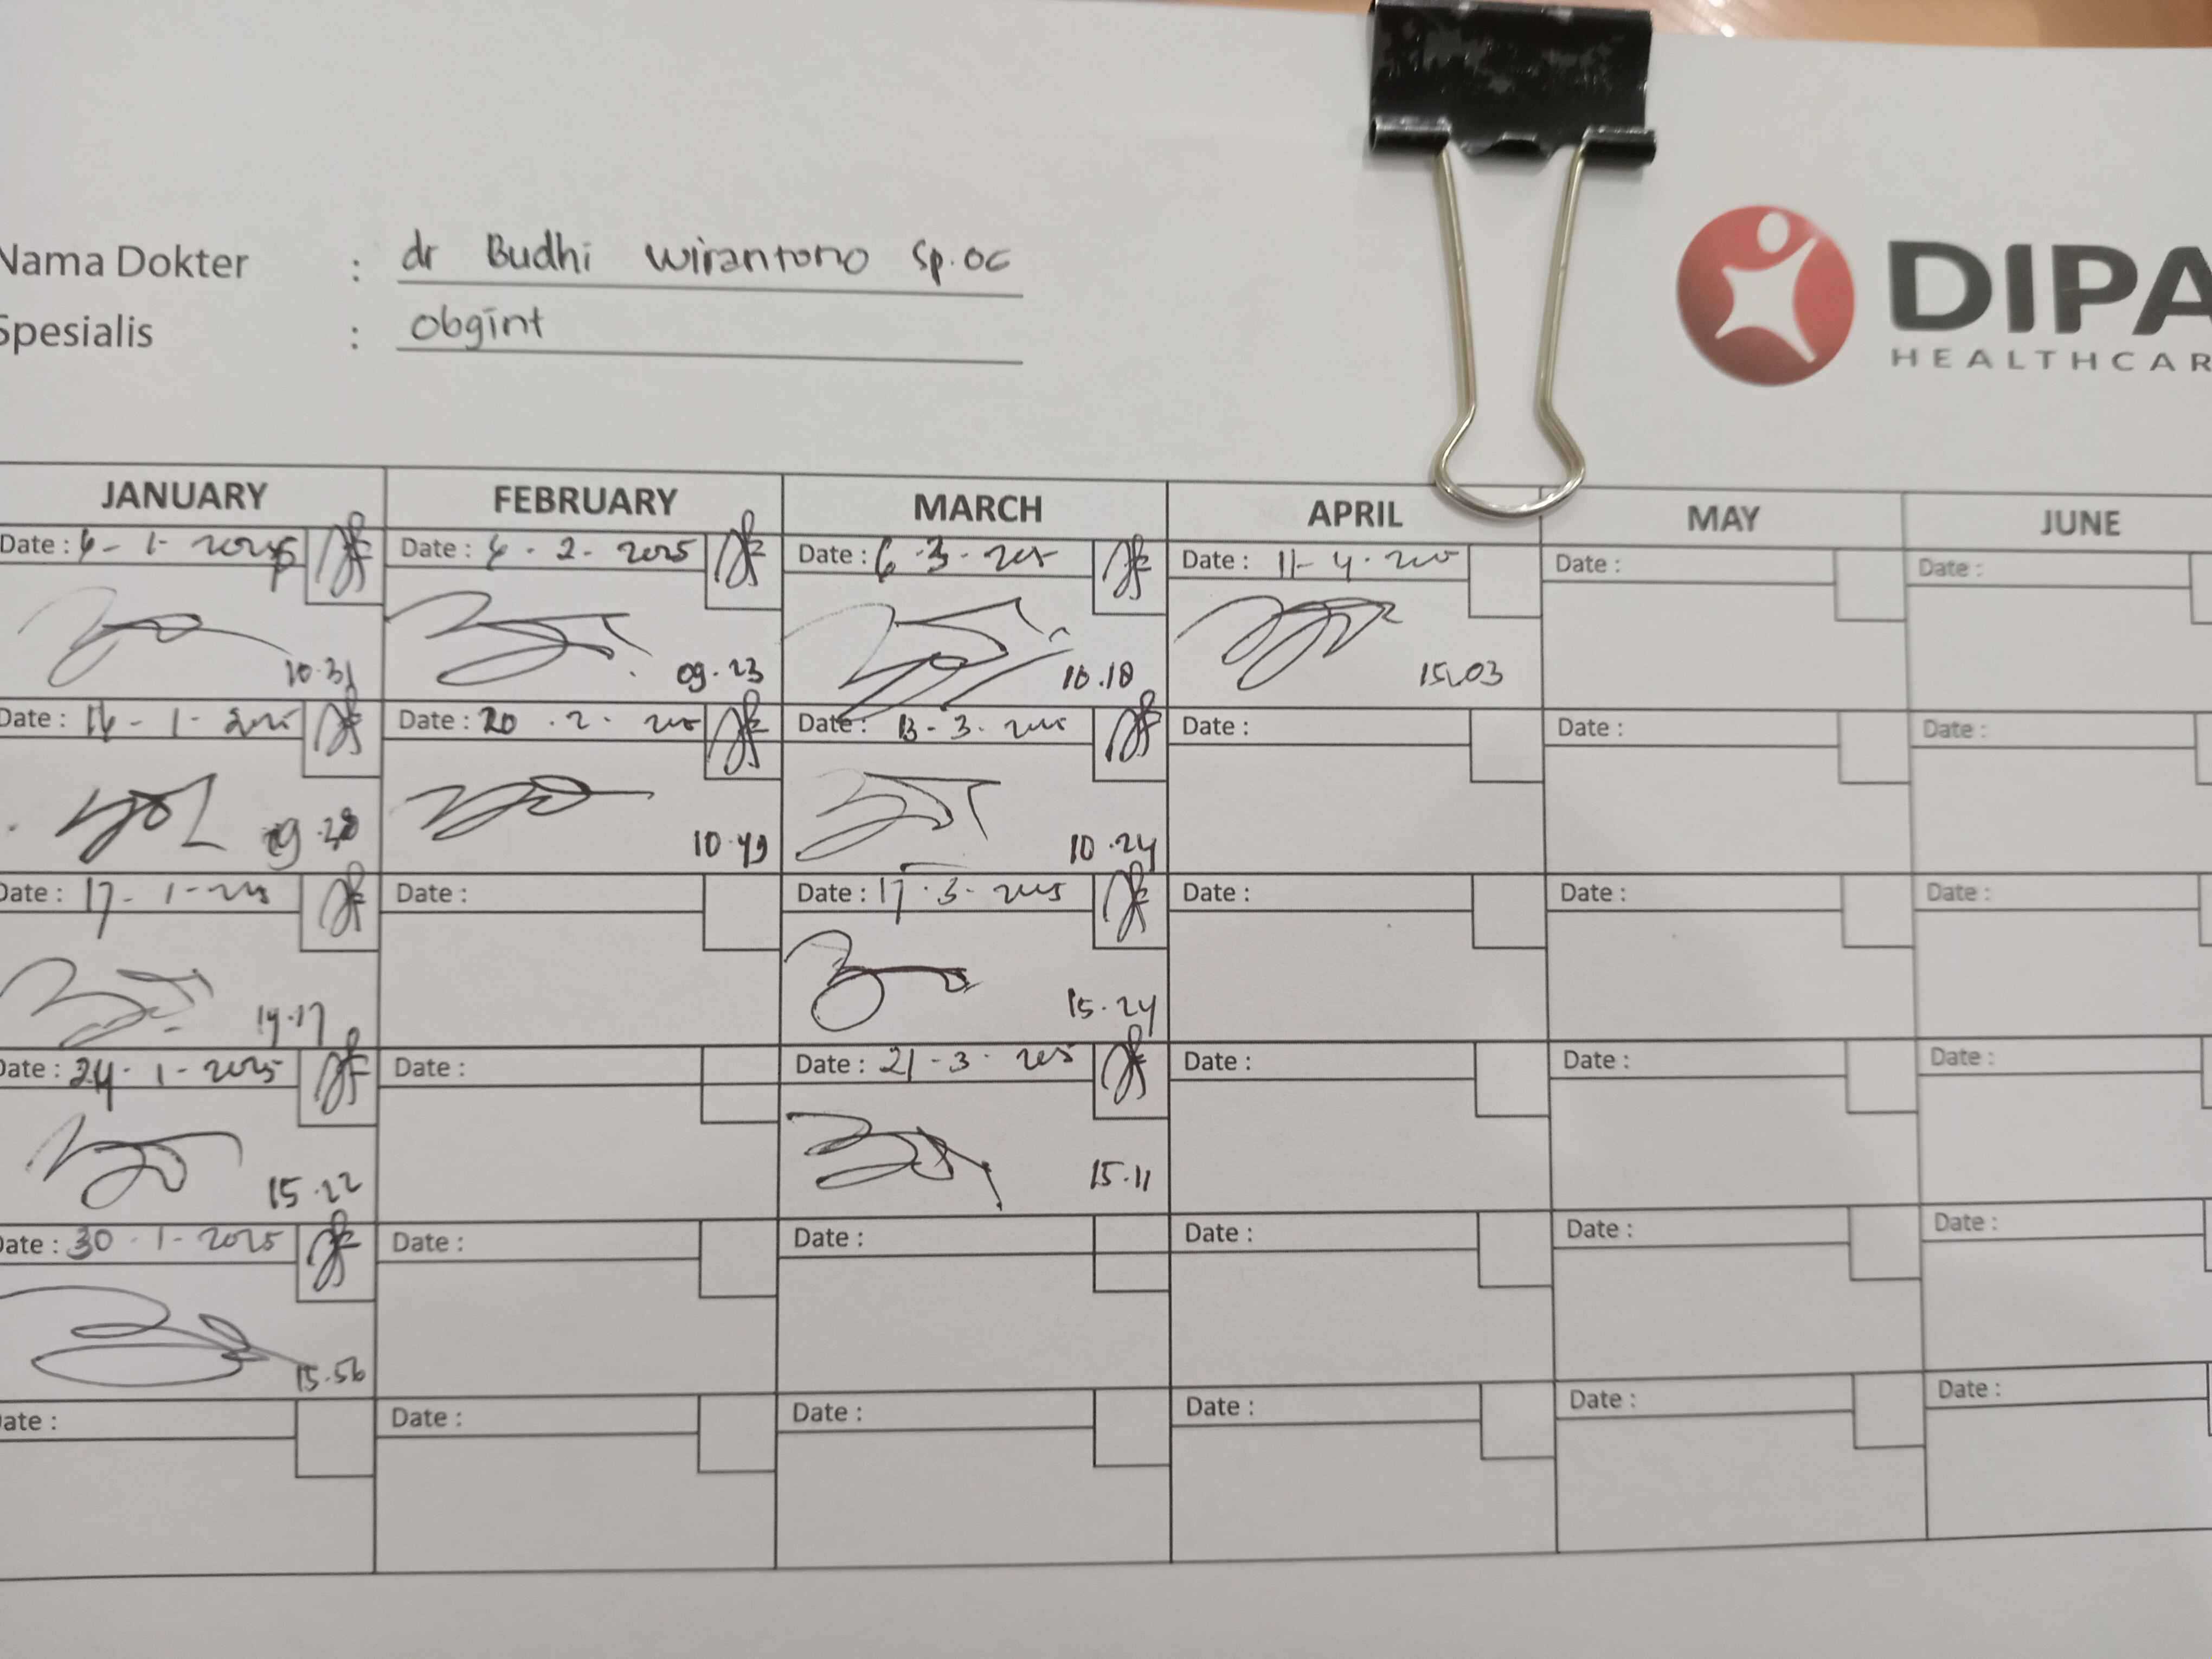 Nama Dokter : dr Budhi Wirantono Sp.OG
Spesialis : Obgint
DIPA
HEALTHCAR
JANUARY FEBRUARY MARCH APRIL MAY JUNE
Date : 6 - 1 - 2025 Date : 6 - 2 - 2025 Date : 6 - 3 - 2025 Date : 11 - 4 - 2025 Date : Date :
10.31 09.23 10.18 15.03
Date : 16 - 1 - 2025 Date : 20 - 2 - 2025 Date : 13 - 3 - 2025 Date : Date : Date :
10.49 10.24
Date : 17 - 1 - 2025 Date : Date : 17 - 3 - 2025 Date : Date : Date :
14.17 15.24
Date : 24 - 1 - 2025 Date : Date : 21 - 3 - 2025 Date : Date : Date :
15.22 15.11
Date : 30 - 1 - 2025 Date : Date : Date : Date : Date :
15.56
Date : Date : Date : Date : Date : Date :